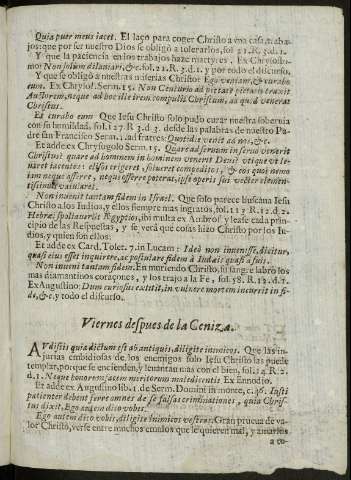 Quia puer meus iacet. El laço para coger Christo a vna casa, traba-
jos: que por ser nuestro Dios se obligò a tolerarlos, fol 21. R. 3. d. 1.
Y que la paciencia en los trabajos haze martyres. Ex Chrysosto-
mo: Non solùm dilaniari, &c. fol. 21. R. 3. d. 1. y por todo el discurso.
Y que se obligò a nuestras miserias Christo: Ego veniam, & curabo
eum. Ex Chrysol. Serm. 15. Non Centurio ad pietatem traxit
Auctorem, neque ad hoc ille irem compulit Christum, ad quod venerat
Christus.
Et curabo eum Que Iesu Christo solo pudo curar nuestra soberuia
con su humildad, fol. 127 R 3. d 3. desde las palabras de nuestro Pa-
dre san Francisco Serm. 1. ad fratres: Quotidie venit ad nos, &c.
Et adde ex Chrysologo Serm. 15. Quare ad seruum in seruo venerit
Christus: quare ad hominem in hominem venerit Deus? vtique vt le-
uaret iacentes: elisos erigeret, solueret compeditos, & eos quos nemo
iam neque afferre, neque offerre poterat, ipse operis sui vector elemen-
tissimus vauitaret.
Non inueni tantam fidem in Israel. Que solo parece buscaua Iesu
Christo a los Iudios, y ellos siempre mas ingratos, fol. 11 7 R. 12. d. 2.
Hebræi spoliauerũt Ægyptios, ibi multa ex Ambros. y lease cada prin-
cipio de las Respuestas, y se verà que cosas hizo Christo por los Iu-
dios, y quien son ellos.
Et adde ex Card. Tolet. 7. in Lucam: Ideò non inuenisse, dicitur,
quasi eius esset inquirere, ac postulare fidem à Iudæis quasi à suis.
Non inueni tantam fidem. En muriendo Christo, su sangre labrò los
mas diamantinos coraçones, y los trajo a la Fe, fol. 58. R. 12. d. 1.
Ex Augustino: Dum curiosus extitit, in vulnere mortem incurrit in fi-
de, &c. y todo el discurso.
Viernes despues de la Ceniza.
AVdistis quia dictum est ab antiquis, diliges inimicos. Que las in-
jurias embidiosas de los enemigos solo Iesu Christo las puede
templar, porque se encienden, y leuantan mas con el bien, fol. 14. R. 2.
d. 1. Neque honorem facem meritorum maledicentis Ex Ennodio.
Et adde ex Augustino lib. 1. de Serm. Domini in monte, c. 36. Iusti
patienter debent ferre omnes de se falsas criminationes, quia Chris-
tus dixit, Ego autem dico vobis.
Ego autem dico vobis, diligite inimicos vestros. Gran prueua de va-
lor Christo, verse entre muchos emulos que le quieren mal, y amarlos
a to-